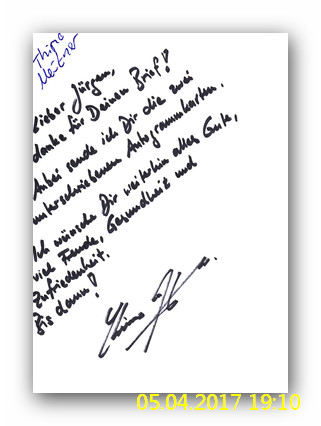 Lieber Jürgen,
danke für Deinen Brief!
Anbei sende ich Dir die zwei
unterschriebenen Autogrammkarten.
Ich wünsche Dir weiterhin alles Gute,
viel Freude, Gesundheit und
Zufriedenheit.
Bis dann!
05.04.2017 19:10